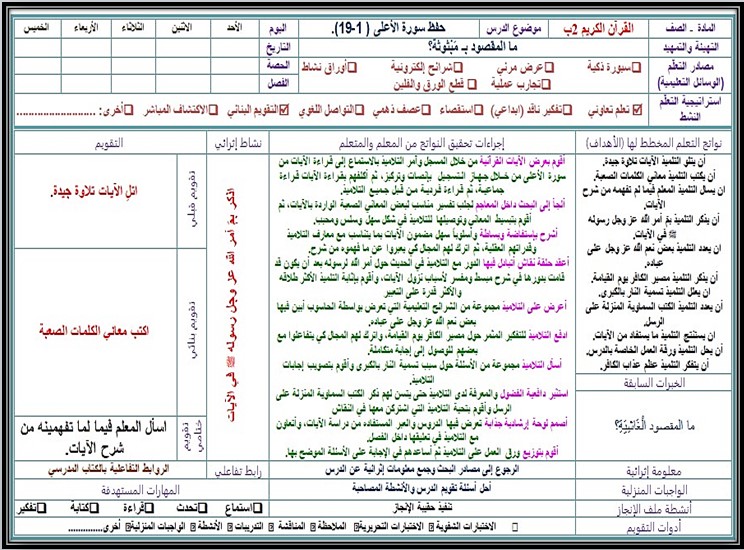 المادة ـ الصف
القرآن الكريم 2ب
موضوع الدرس
حفظ سورة الأعلى ( 1-19).
اليوم
الأحد
الاثنين
الثلاثاء
الأربعاء
الخميس
التهيئة والتمهيد
ما المقصود بـ مَبْثُوثَة؟
التاريخ
مصادر التعلم
(الوسائل التعليمية)
سبورة ذكية
عرض مرئي
شرائح إلكترونية
أوراق نشاط
تجارب عملية
قطع الورق والفلين
الحصة
الفصل
استراتيجية التعلم
النشط
تعلم تعاوني
تفكير ناقد (ابداعي)
استقصاء
عصف ذهمي
التواصل اللغوي
التقويم البنائي
الاكتشاف المباشر
أخرى: ..........................
نواتج التعلم المخطط لها (الأهداف)
إجراءات تحقيق النواتج من المعلم والمتعلم
نشاط إثرائي
التقويم
أن يتلو التلميذ الآيات تلاوة جيدة.
أن يكتب التلميذ معاني الكلمات الصعبة.
ان يسأل التلميذ المعلم فيما لم تفهمه من شرح
الآيات.
أن يذكر التلميذ بم أمر الله عز وجل رسوله
ﷺ في الآيات.
ان يعدد التلميذ بعض نعم الله عز وجل على
عباده.
أن يذكر التلميذ مصير الكافر يوم القيامة.
أن يعلل التلميذ تسمية النار بالكبرى.
أن يعدد التلميذ الكتب السماوية المنزلة على
الرسل.
أن يستنتج التلميذ ما يستفاد من الآيات.
أن يحل التلميذ ورقة العمل الخاصة بالدرس.
أن يتفكر التلميذ عظم عذاب الكافر.
الخبرات السابقة
ما المقصود الْغَاشِيَةِ؟
أقوم بعرض الآيات القرآنية من خلال المسجل وآمر التلاميذ بالاستماع إلى قراءة الآيات من
سورة الأعلى من خلال جهاز التسجيل بإنصات وتركيز، ثم أكلفهم بقراءة الآيات قراءة
جماعية، ثم قراءة فردية من قبل جميع التلاميذ.
ألجأ إلى البحث داخل المعاجم لجلب تفسير مناسب لبعض المعاني الصعبة الواردة بالآيات، ثم
أقوم بتبسيط المعاني وتوصيلها للتلاميذ في شكل سهل وسلس ومحبب.
أشرح بإستفاضة وبساطة وأسلوباً سهل مضمون الآيات بما يتناسب مع معارف التلاميذ
وقدراتهم العقلية، ثم اترك لهم المجال كي يعبروا عن ما فهموه من شرح.
أعقد حلقة نقاش أتبادل فيها الدور مع التلاميذ في الحديث حول أمر الله لرسوله بعد أن يكون قد
قامت بدورها في شرح مبسط ومفسر لأسباب نزول الآيات، وأقوم بإثابة التلميذ الأكثر طلاقه
والأكثر قدرة على التعبير
أعرض على التلاميذ مجموعة من الشرائح التعليمية التي تعرض بواسطة الحاسوب أبين فيها
بعض نعم الله عز وجل على عباده.
ادفع التلاميذ للتفكير المثمر حول مصير الكافر يوم القيامة، واترك لهم المجال كي يتفاعلوا مع
بعضهم للوصول إلى إجابة متكاملة.
أسأل التلاميذ مجموعة من الأسئلة حول سبب تسمية النار بالكبرى وأقوم بتصويب إجابات
التلاميذ.
استثير دافعية الفضول والمعرفة لدى التلاميذ حتى يتسن لهم ذكر الكتب السماوية المنزلة على
الرسل وأقوم بتحية التلاميذ التي اشتركن معها في النقاش
أصمم لوحة إرشادية جذابة تعرض فيها الدروس والعبر المستفادة من دراسة الآيات، وأتعاون
مع التلاميذ في تعليقها داخل الفصل.
أقوم بتوزيع ورق العمل على التلاميذ ثم أساعدهم في الإجابة على الأسئلة الموضح بها.
اذكر بمَ أمر الله عز وجل رسوله ﷺ في الآيات
تقويم قبلي
اتل الآيات تلاوة جيدة.
تقويم بنائي
اكتب معاني الكلمات الصعبة
تقويم
ختامي
اسأل المعلم فيما لما تفهمينه من
شرح الآيات.
معلومة إثرائية
الرجوع إلى مصادر البحث وجمع معلومات إثرائية عن الدرس
رابط تفاعلي
الروابط التفاعلية بالكتاب المدرسي
الواجبات المنزلية
أحل أسئلة تقويم الدرس والأنشطة المصاحبة
المهارات المستهدفة
أنشطة ملف الإنجاز
تنفيذ حقيبة الإنجاز
استماع
تحدث
قراءة
كتابة
تفكير
أدوات التقويم
الاختبارات الشفوية
الاختبارات التحريرية
الملاحظة
المناقشة
التدريبات
الأنشطة
الواجبات المنزلية
أخرى..............